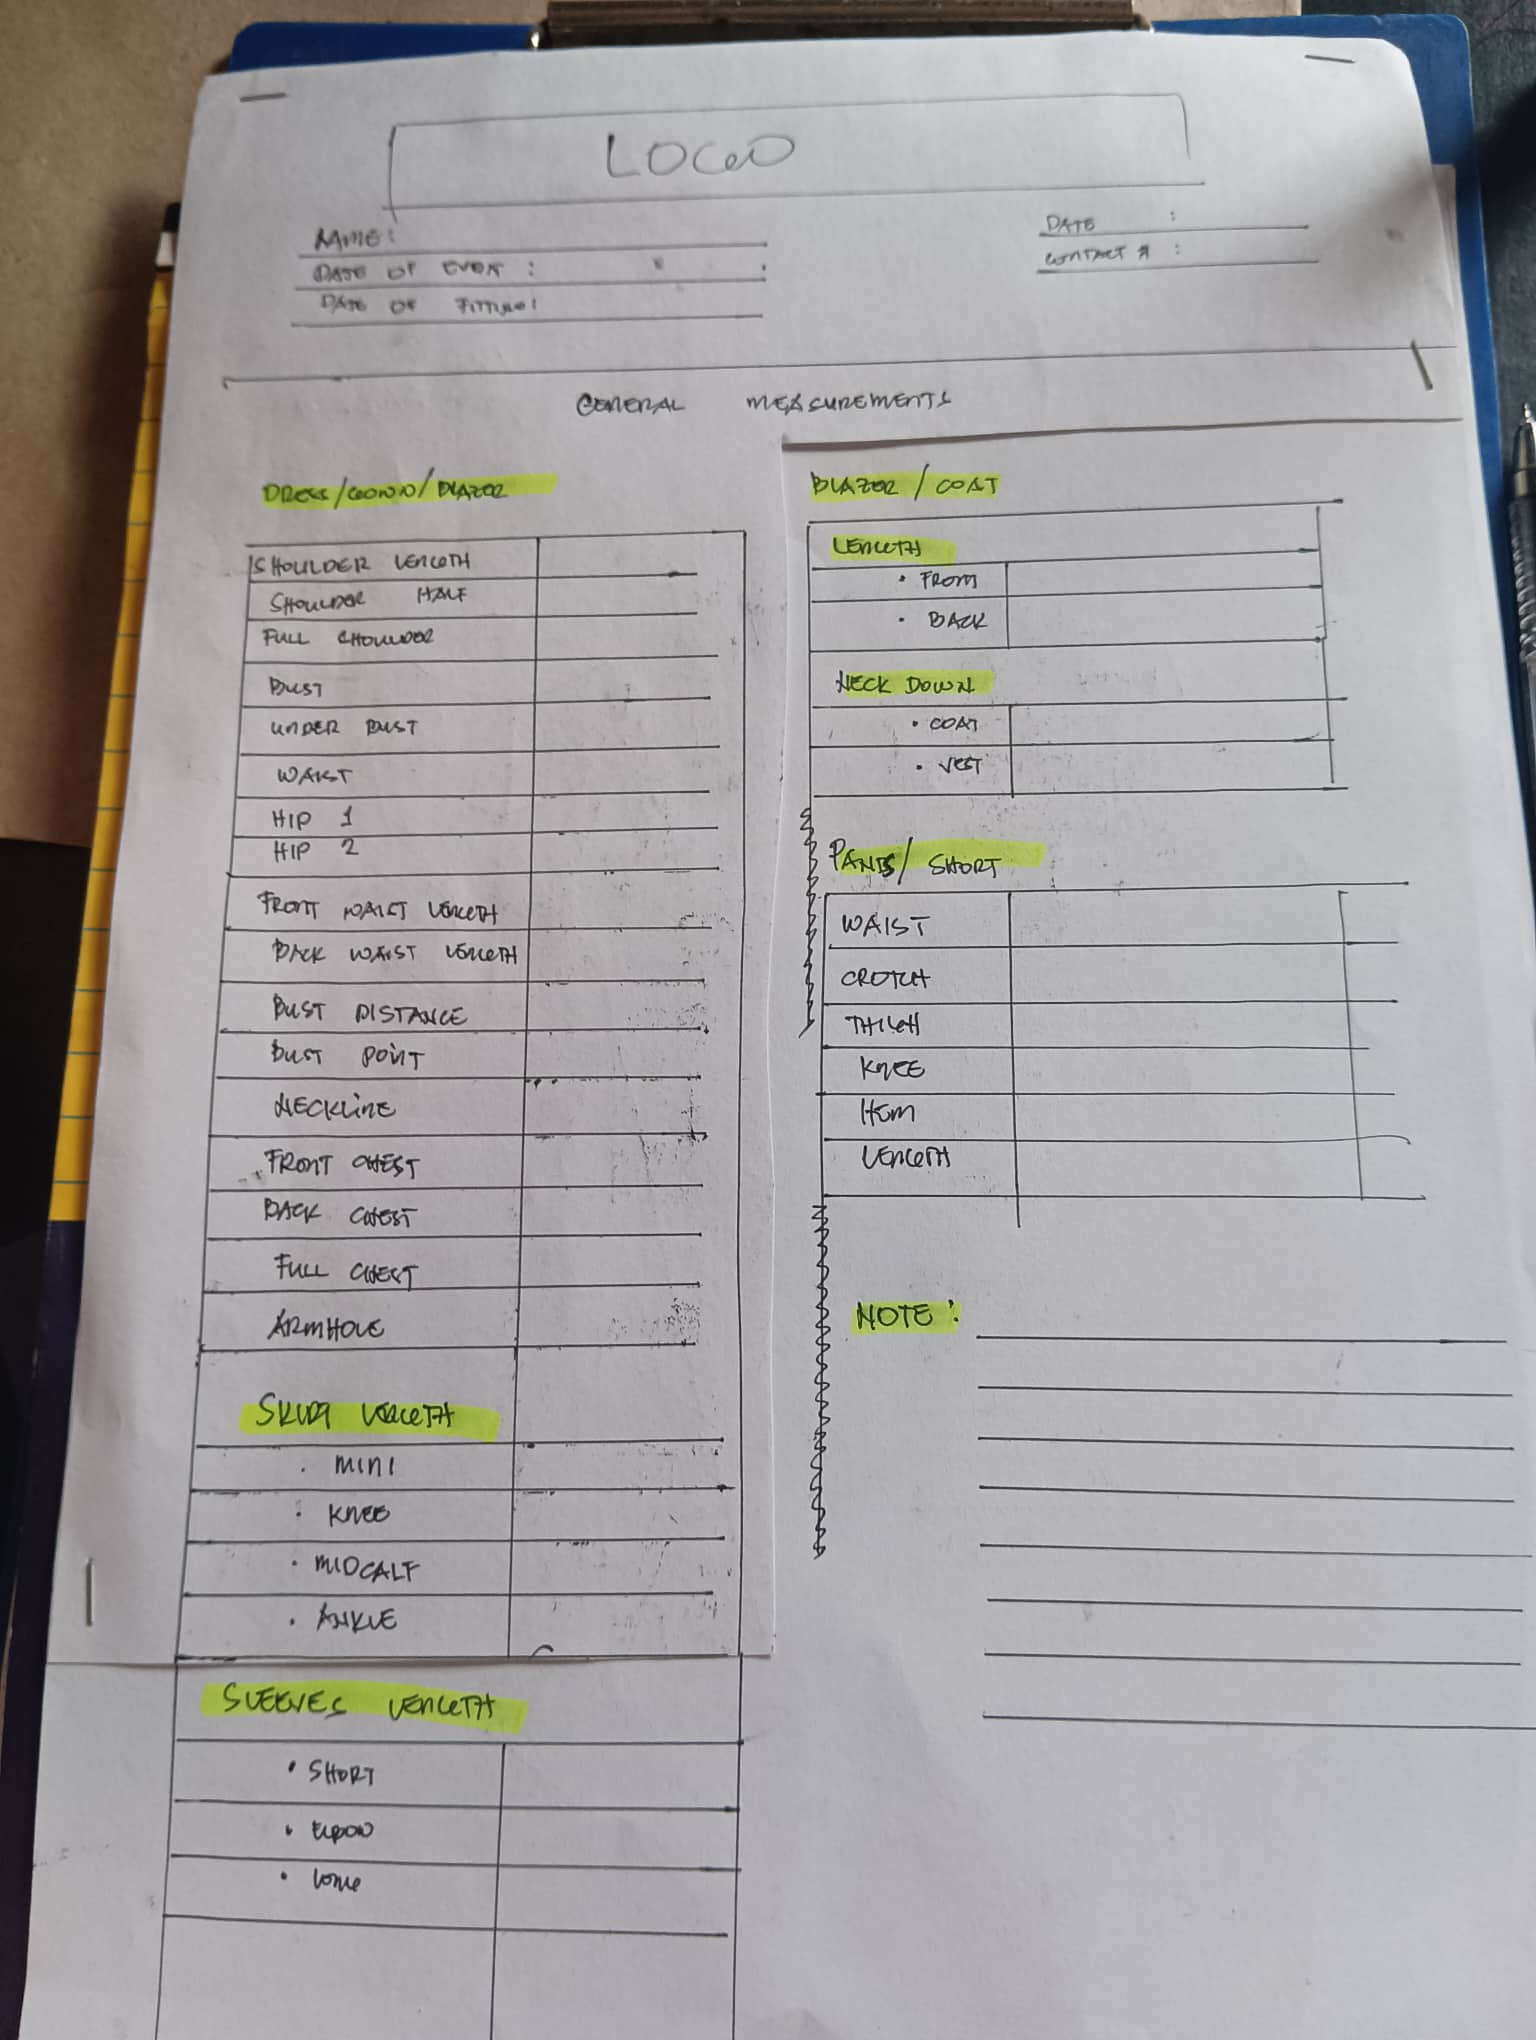 LOGO
NAME:
DATE OF EVENT :
DATE OF FITTING:
DATE :
CONTACT # :
GENERAL MEASUREMENTS
DRESS/GOWN/BLAZER
SHOULDER LENGTH
SHOULDER HALF
FULL SHOULDER
BUST
UNDER BUST
WAIST
HIP 1
HIP 2
FRONT WAIST LENGTH
BACK WAIST LENGTH
BUST DISTANCE
BUST POINT
NECKLINE
FRONT CHEST
BACK CHEST
FULL CHEST
ARMHOLE
SKIRT LENGTH
• MINI
• KNEE
• MIDCALF
• ANKLE
SLEEVES LENGTH
• SHORT
• ELBOW
• LONG
BLAZER / COAT
LENGTH
• FRONT
• BACK
NECK DOWN
• COAT
• VEST
PANTS/ SHORT
WAIST
CROTCH
THIGH
KNEE
HEM
LENGTH
NOTE :